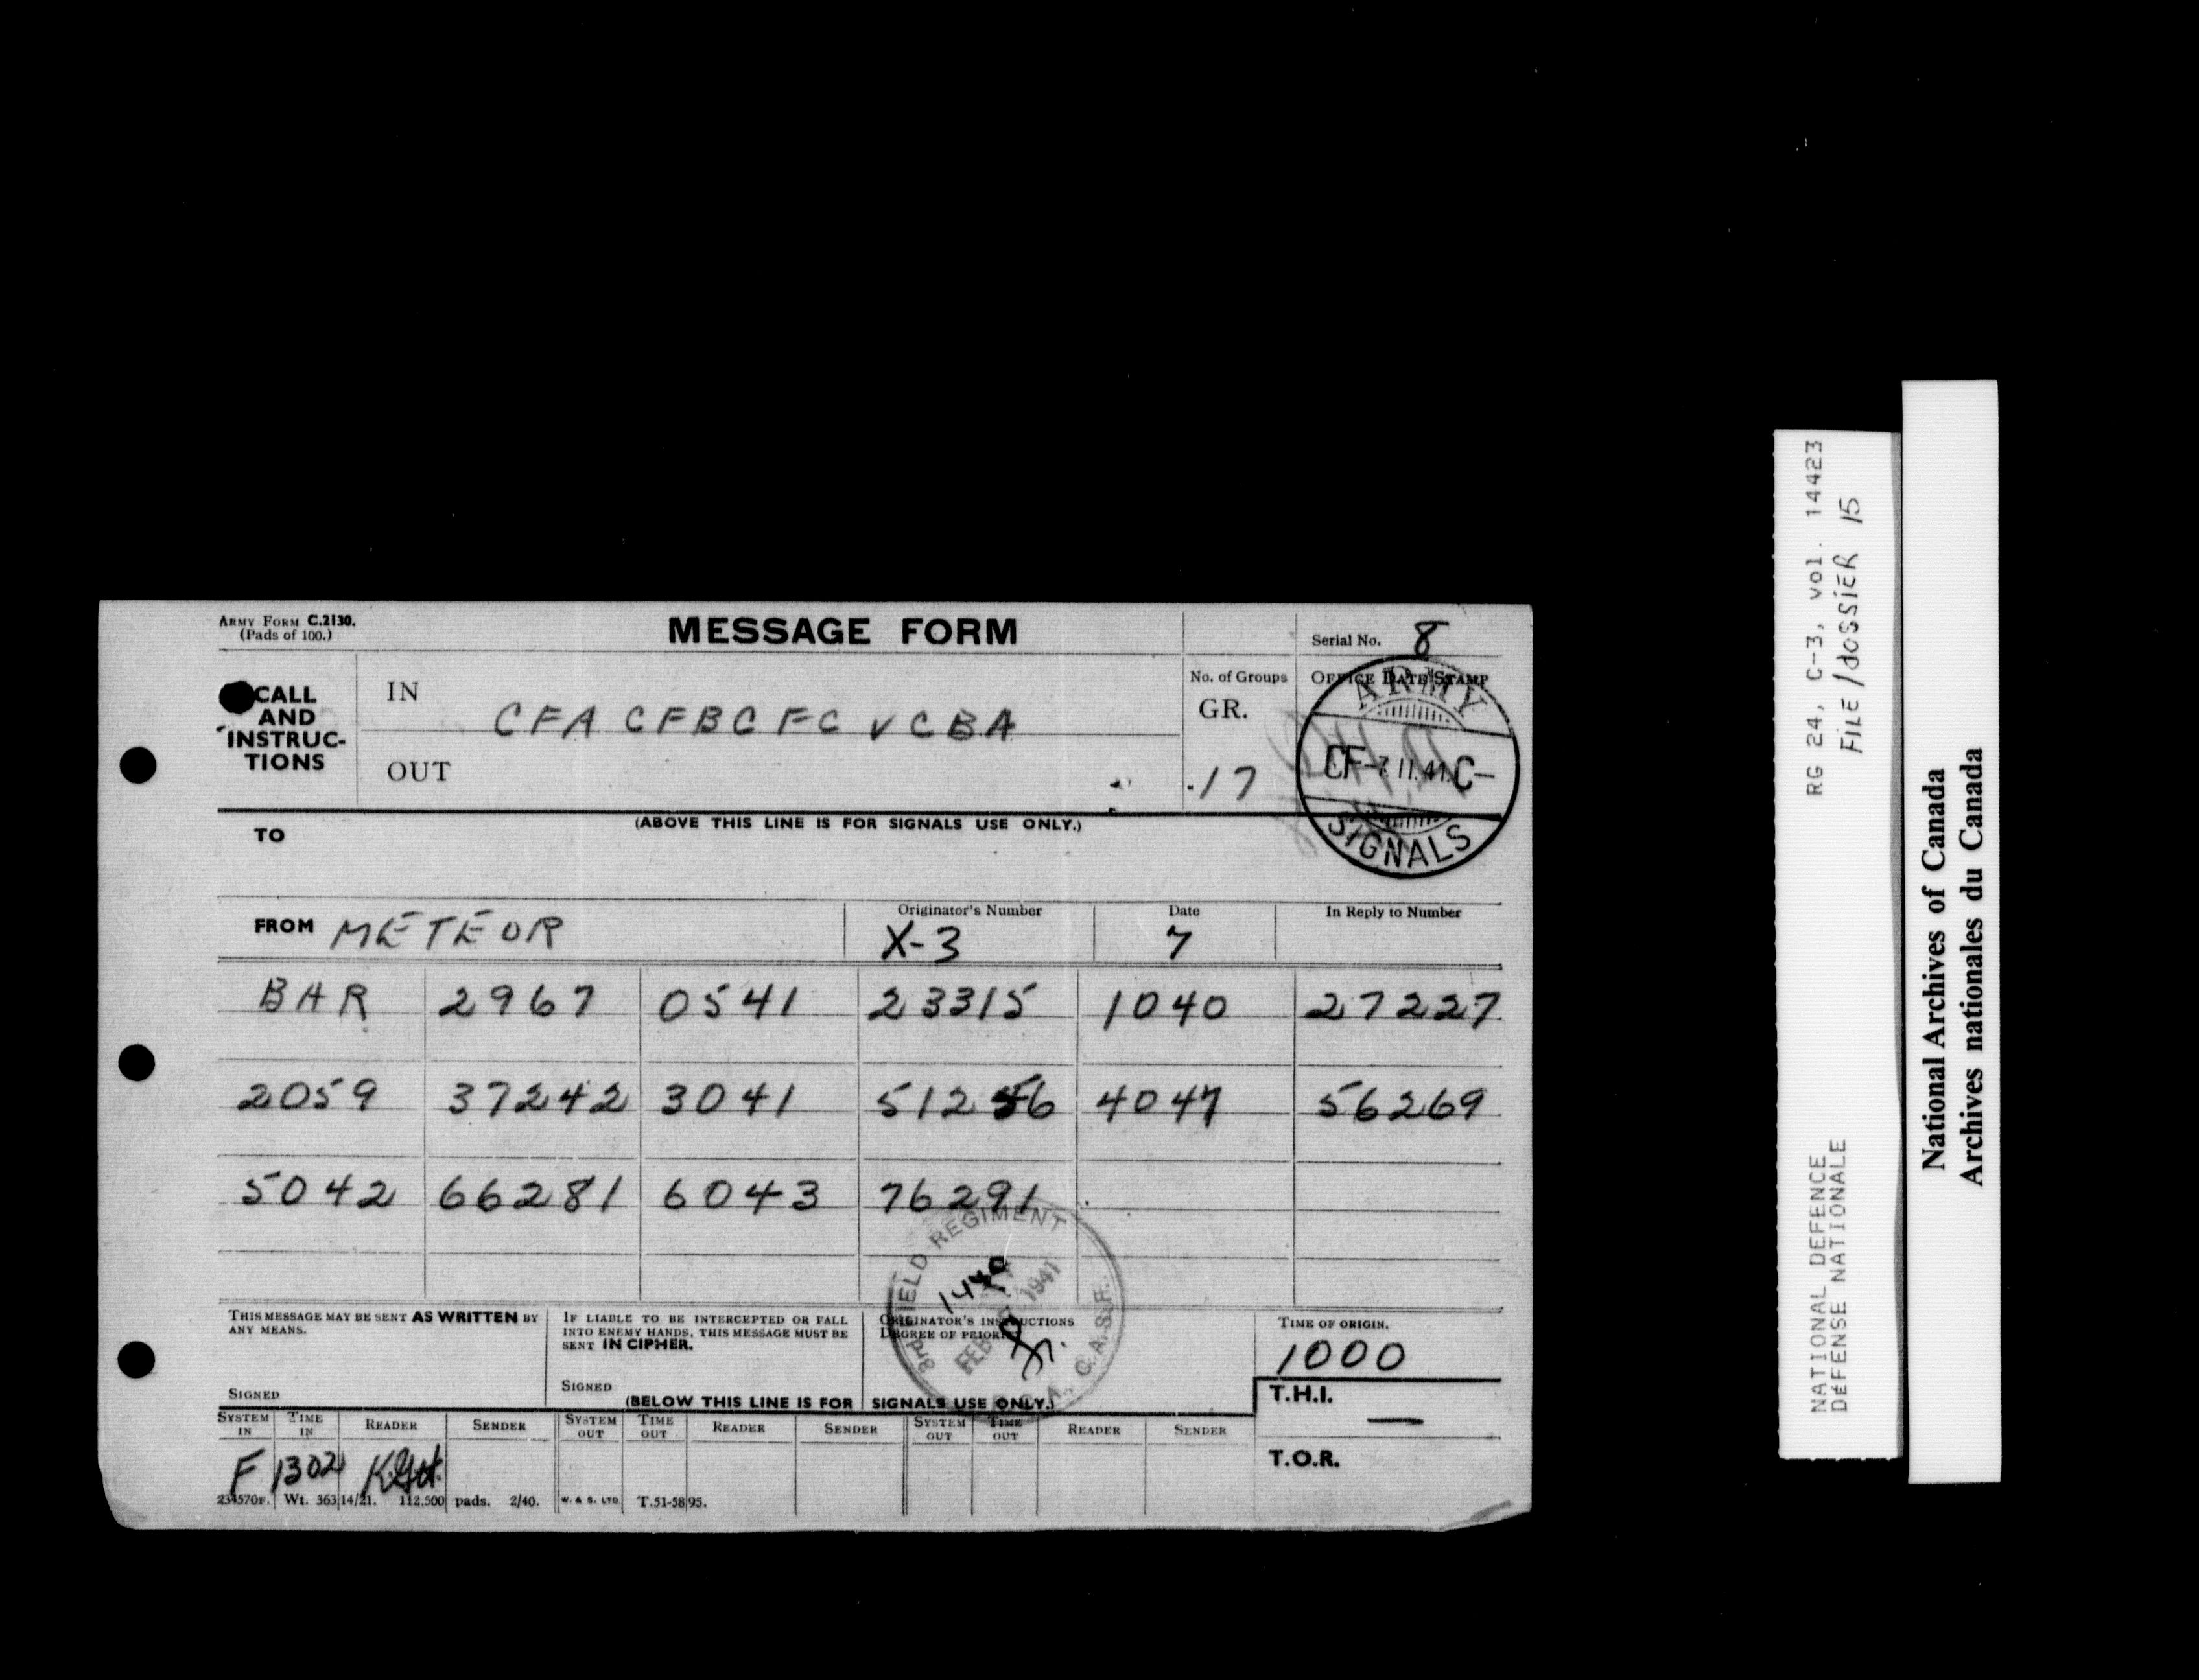 ARMY FORM C.2130.
(Pads of 100.)
MESSAGE FORM
Serial No. 8
CALL AND INSTRUC-TIONS
IN
CFA CFB CFC V CBA
OUT
No. of Groups
GR.
17
OFFICE DATE STAMP
ARMY
CF-7.11.41.C-
SIGNALS
(ABOVE THIS LINE IS FOR SIGNALS USE ONLY.)
TO
FROM METEOR
Originator's Number
X-3
Date
7
In Reply to Number
BAR 2967 0541 23315 1040 27227
2059 37242 3041 51256 4047 56269
5042 66281 6043 76291
3rd FIELD REGIMENT
1440
FEB 1941
R.C.A., C.A.S.F.
THIS MESSAGE MAY BE SENT AS WRITTEN BY ANY MEANS.
SIGNED
IF LIABLE TO BE INTERCEPTED OR FALL INTO ENEMY HANDS, THIS MESSAGE MUST BE SENT IN CIPHER.
SIGNED
ORIGINATOR'S INSTRUCTIONS
DEGREE OF PRIORITY
TIME OF ORIGIN.
1000
(BELOW THIS LINE IS FOR SIGNALS USE ONLY.)
T.H.I.
—
T.O.R.
SYSTEM IN TIME IN READER SENDER SYSTEM OUT TIME OUT READER SENDER SYSTEM OUT TIME OUT READER SENDER
F 1302
234570F. Wt. 36314/21. 112,500 pads. 2/40. W. & S. LTD T.51-5895.
RG 24, C-3, vol. 14423
FILE/dOSSiER 15
NATIONAL DEFENCE
DÉFENSE NATIONALE
National Archives of Canada
Archives nationales du Canada